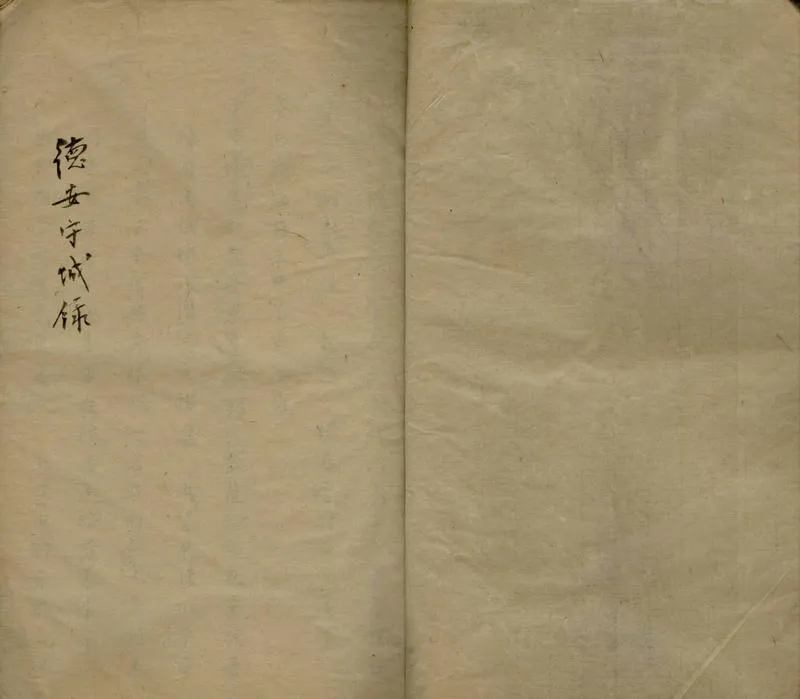 德安守城録